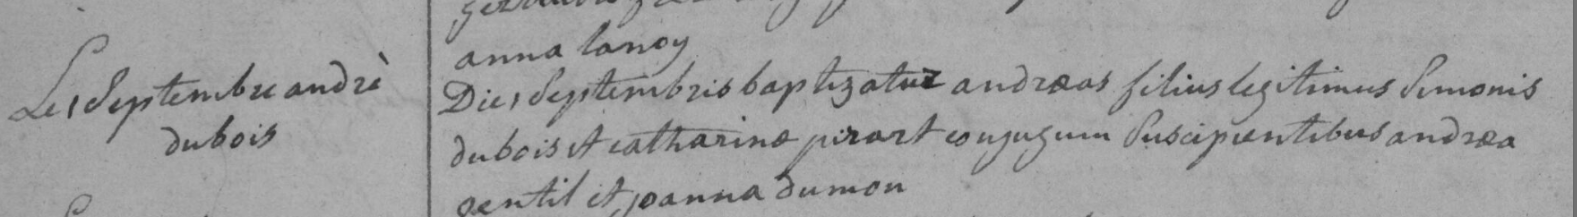 anna lanoy
Le 1 Septembre andrè
dubois
Die 1 Septembris baptizatur andræas filius legitimus Simonis
dubois et catharinæ pirart conjugum Suscipientibus andræa
gentil et joanna dumon